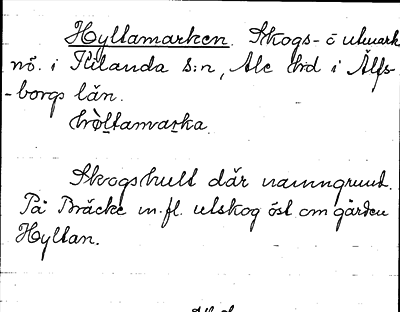 Hyltamarken. Skogs- o utmark
nö. i Kilanda s:n, Ale hrd i Älfs-
-borgs län.
hòltamarka.
Skogshult där namngrund.
På Bräcke m.fl. utskog öst om gården
Hyltan.